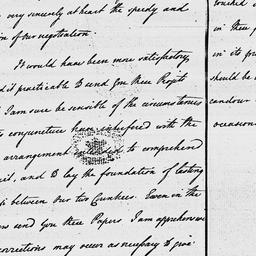 very sincerely at heart the speedy and
on of our negotiation.
It would have been more satisfactory,
it practicable to send you these Projets
I am sure be sensible of the circumstances
conjuncture have interfered with the
arrangement intended to comprehend
and to lay the foundation of lasting
between our two Countries. Even in the
now send you these Papers I am apprehensive
corrections may occur as necessary to give
touched
in these
in its
should be
candour
occasion